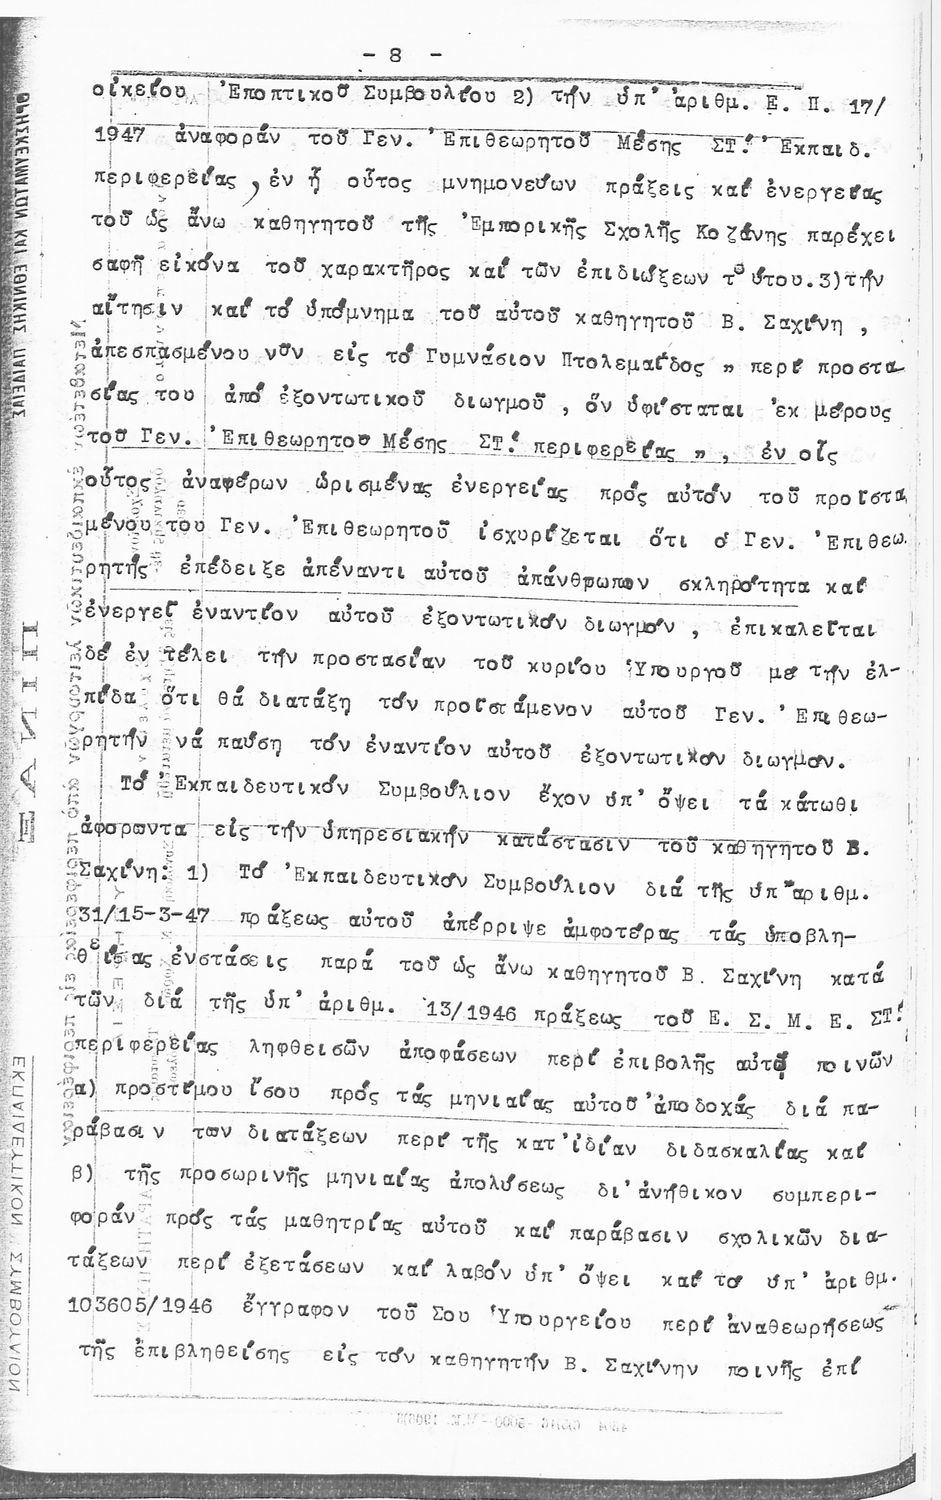 - 8 -
οἰκείου Ἐποπτικοῦ Συμβουλίου 2) τήν ὑπ' ἀριθμ. Ε. Π. 17/
1947 ἀναφοράν τοῦ Γεν. Ἐπιθεωρητοῦ Μέσης ΣΤ.' Ἐκπαιδ.
περιφερείας, ἐν ᾗ οὗτος μνημονεύων πράξεις καί ἐνεργείας
τοῦ ὡς ἄνω καθηγητοῦ τῆς Ἐμπορικῆς Σχολῆς Κοζάνης παρέχει
σαφῆ εἰκόνα τοῦ χαρακτῆρος καί τῶν ἐπιδιώξεων τούτου. 3) τήν
αἴτησιν καί τό ὑπόμνημα τοῦ αὐτοῦ καθηγητοῦ Β. Σαχίνη ,
ἀπεσπασμένου νῦν εἰς τό Γυμνάσιον Πτολεμαΐδος „ περί προστα-
σίας του ἀπό ἐξοντωτικοῦ διωγμοῦ , ὅν ὑφίσταται ἐκ μέρους
τοῦ Γεν. Ἐπιθεωρητου Μέσης ΣΤ.' περιφερείας „ , ἐν οἷς
οὗτος ἀναφέρων ὡρισμένας ἐνεργείας πρός αὐτόν τοῦ προϊστα
μένου του Γεν. Ἐπιθεωρητοῦ ἰσχυρίζεται ὅτι ὁ Γεν. Ἐπιθεω.
ρητής ἐπέδειξε ἀπέναντι αὐτοῦ ἀπάνθρωπον σκληρότητα καί
ἐνεργεῖ ἐναντίον αὐτοῦ ἐξοντωτικόν διωγμόν , ἐπικαλεῖται
δέ ἐν τέλει τήν προστασίαν τοῦ κυρίου Ὑπουργοῦ με τήν ἐλ-
πίδα ὅτι θά διατάξῃ τόν προϊστάμενον αὐτοῦ Γεν. Ἐπιθεω-
ρητήν νά παύσῃ τόν ἐναντίον αὐτοῦ ἐξοντωτικόν διωγμόν.
Τό Ἐκπαιδευτικόν Συμβούλιον ἔχον ὑπ' ὄψει τά κάτωθι
ἀφορωντα εἰς τήν ὑπηρεσιακήν κατάστασιν τοῦ καθηγητοῦ Β.
Σαχίνη: 1) Τό Ἐκπαιδευτικόν Συμβούλιον διά τῆς ὑπ' ἀριθμ.
31/15-3-47 πράξεως αὐτοῦ ἀπέρριψε ἀμφοτέρας τάς ὑποβλη-
θείσας ἐνστάσεις παρά τοῦ ὡς ἄνω καθηγητοῦ Β. Σαχίνη κατά
τῶν διά τῆς ὑπ' ἀριθμ. 13/1946 πράξεως τοῦ Ε. Σ. Μ. Ε. ΣΤ.'
περιφερείας ληφθεισῶν ἀποφάσεων περί ἐπιβολῆς αὐτῷ ποινῶν
α) προστίμου ἴσου πρός τάς μηνιαίας αὐτοῦ ἀποδοχάς διά πα-
ράβασιν των διατάξεων περί τῆς κατ' ἰδίαν διδασκαλίας καί
β) τῆς προσωρινῆς μηνιαίας ἀπολύσεως δι' ἀνήθικον συμπερι-
φοράν πρός τάς μαθητρίας αὐτοῦ καί παράβασιν σχολικῶν δια-
τάξεων περί ἐξετάσεων καί λαβόν ὑπ' ὄψει καί το ὑπ' ἀριθμ.
103605/1946 ἔγγραφον τοῦ Σου Ὑπουργείου περί ἀναθεωρήσεως
τῆς ἐπιβληθείσης εἰς τόν καθηγητήν Β. Σαχίνην ποινῆς ἐπί